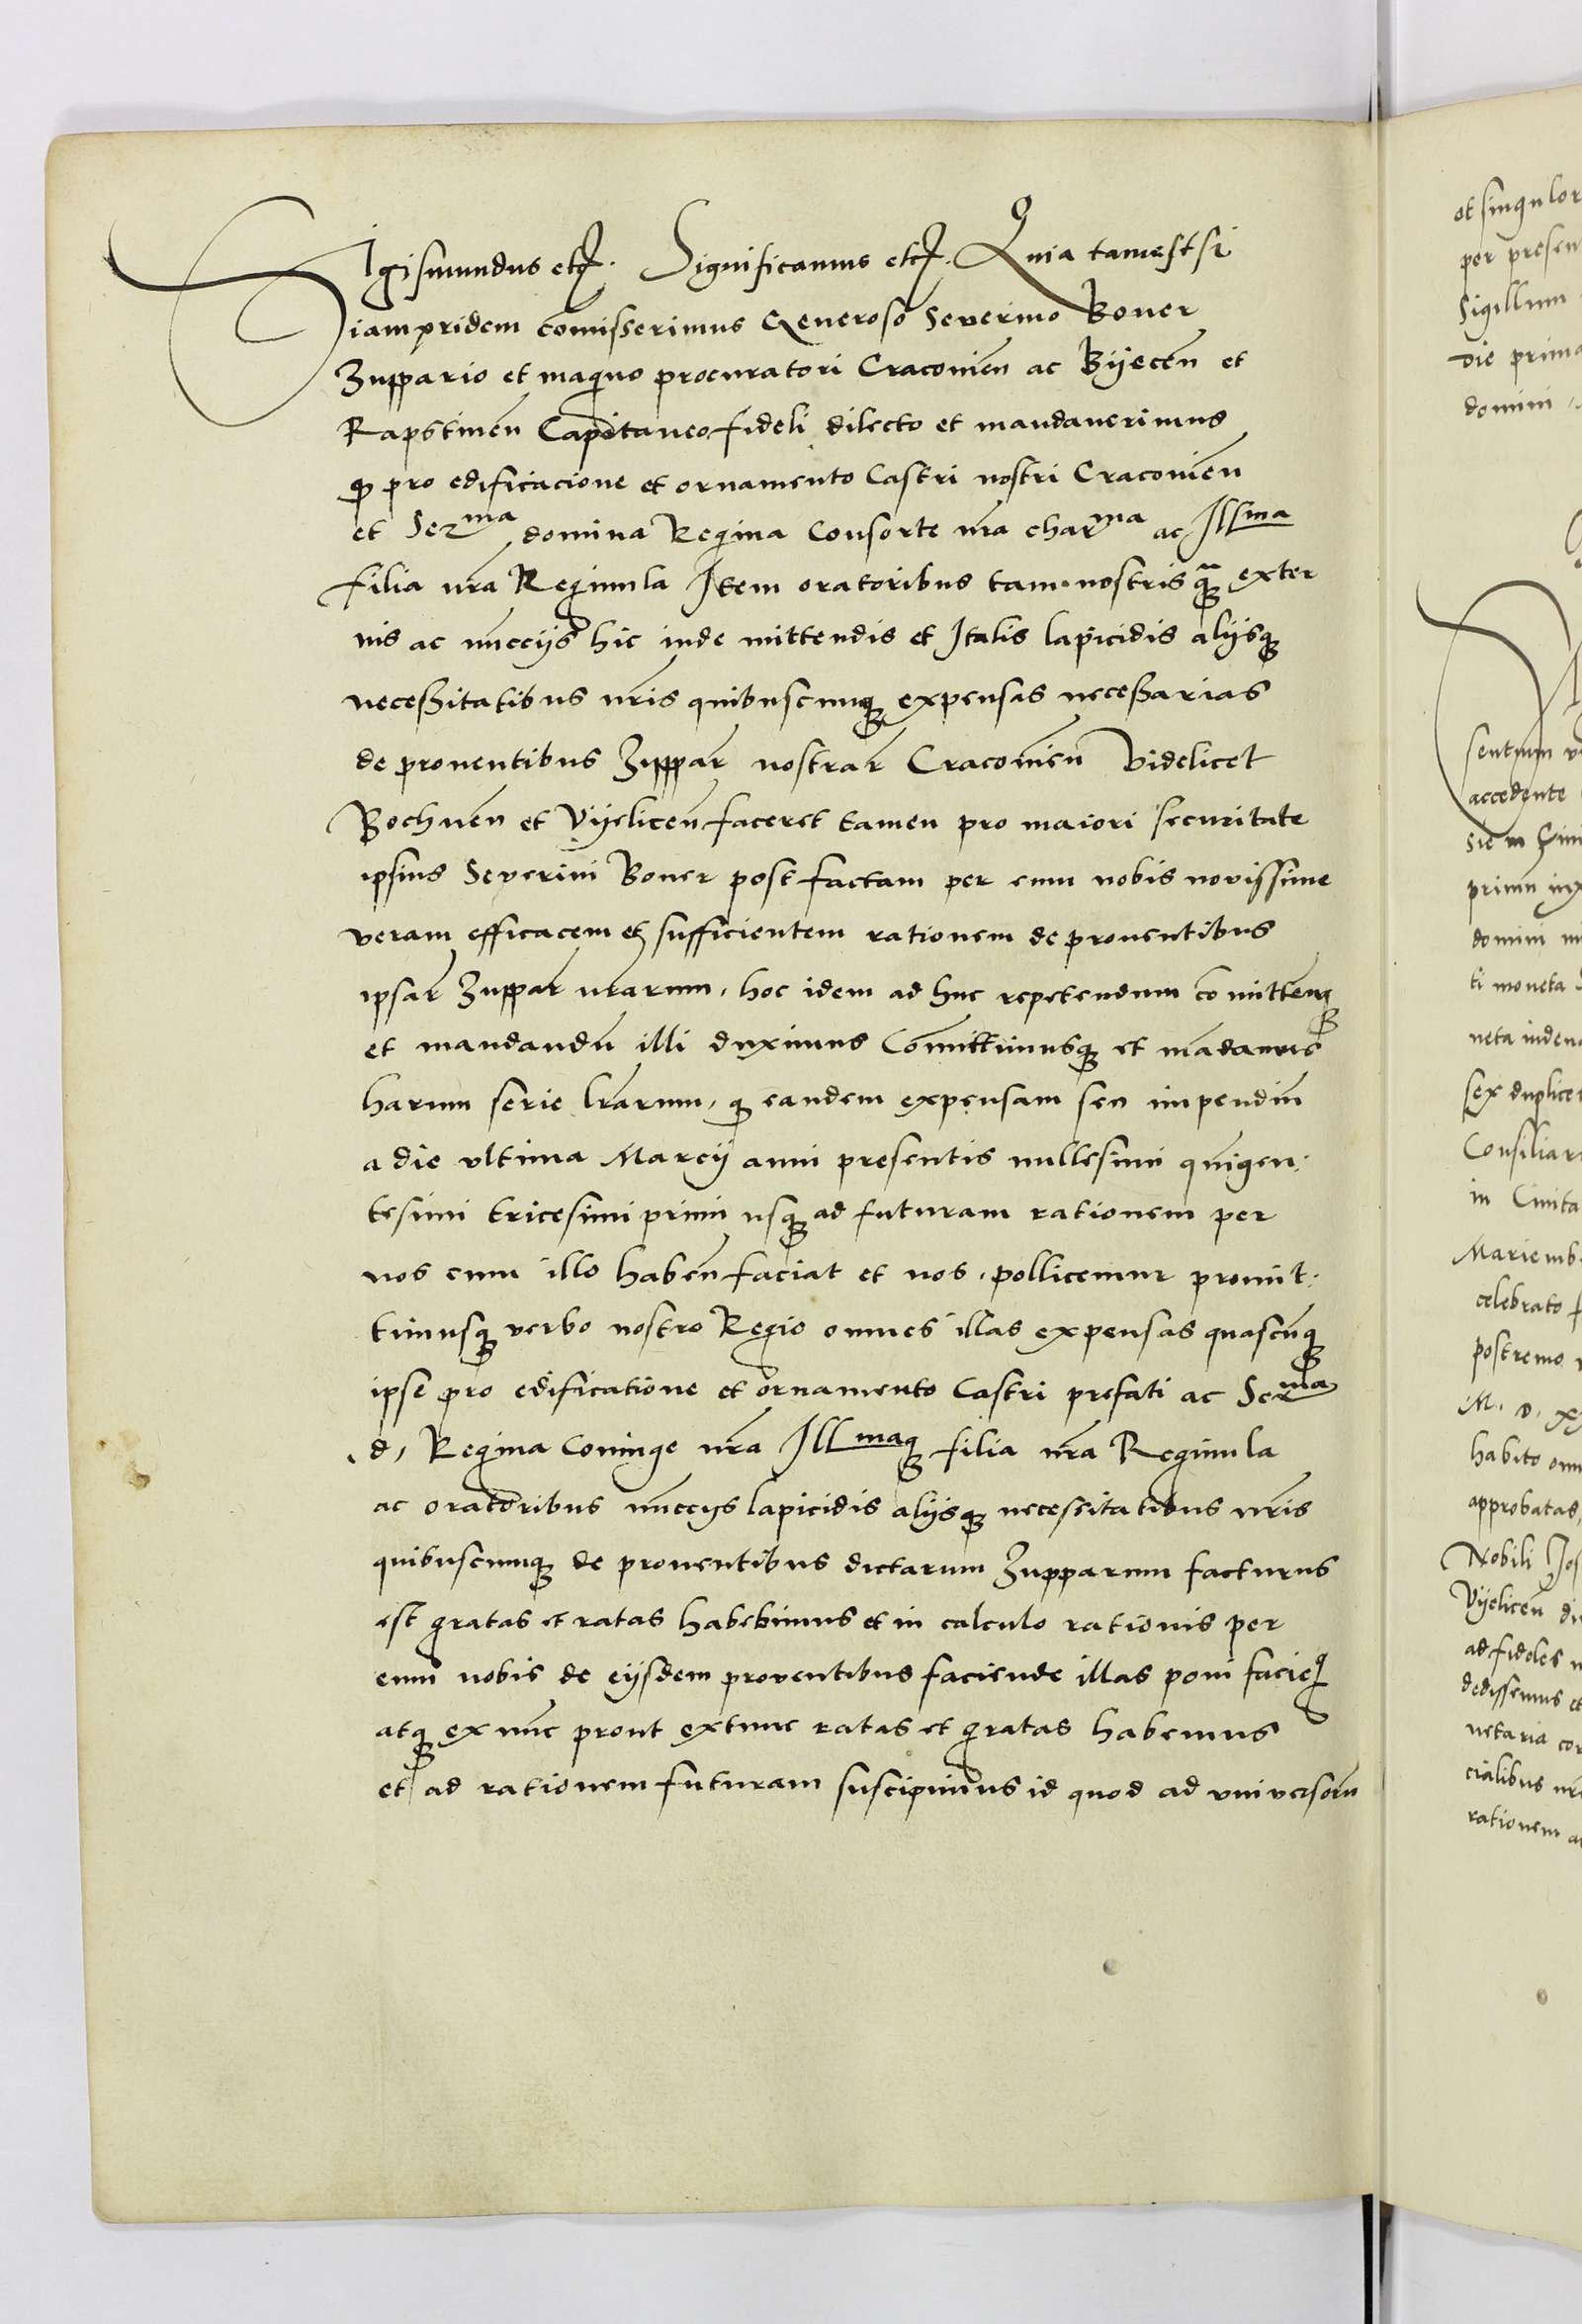 Sigismundus etc. Significamus etc. Quia tametsi
iampridem comisserimus Generoso Severino Boner
Zuppario et magno procuratori Cracovien ac Byecen et
Rapstinen Capitaneo fideli dilecto et mandaverimus
q pro edificacione et ornamento Castri nostri Cracovien
et Serma domina Regina Consorte nra charma ac Illma
filia nra Reginula Item oratoribus tam nostris quam exter
nis ac nuccijs hic inde mittendis et Italis lapicidis alijsq
necessitatibus nris quibuscunq expensas necessarias
de proventibus Zuppar nostrar Cracovien Videlicet
Bochnen et Vijelicen faceret tamen pro maiori securitate
ipsius Severini Boner post factam per eum nobis novissime
veram efficacem et sufficientem rationem de proventibus
ipsar Zuppar nrarum, hoc idem ad huc repetendum comitten
et mandandu illi duximus Comittimusq et madamus
harum serie lrarum, q eandem expensam seu impendiu
a die ultima Marcij anni presentis millesimi quigen:
tesimi tricesimi primi usq ad futuram rationem per
nos cum illo haben faciat et nos pollicemur promit:
timusq verbo nostro Regio omnes illas expensas quascuq
ipse pro edificatione et ornamento Castri prefati ac Serma
d, Regina Coniuge nra Illmaq filia nra Reginula
ac oratoribus nuccijs lapicidis alijsq necessitatibus nris
quibuscumq de proventibus dictarum Zupparum facturus
est gratas et ratas habebimus et in calculo rationis per
eum nobis de eijsdem proventibus faciende illas poni facie
atq ex nuc prout extunc ratas et gratas habemus
et ad rationem futuram suscipimus id quod ad universoru
et singulor
per presen
Sigillum
die prima
domini
sentium
accedente
domini
ti moneta
neta inden
sex duplice
Consiliar
in Civita
Mariemb
celebrato
postremo
M. D. XX
habito om
approbatas,
Nobili Jos
Vijelicen di
ad fideles
dedissemus et
netaria cor
cialibus nr
rationem a